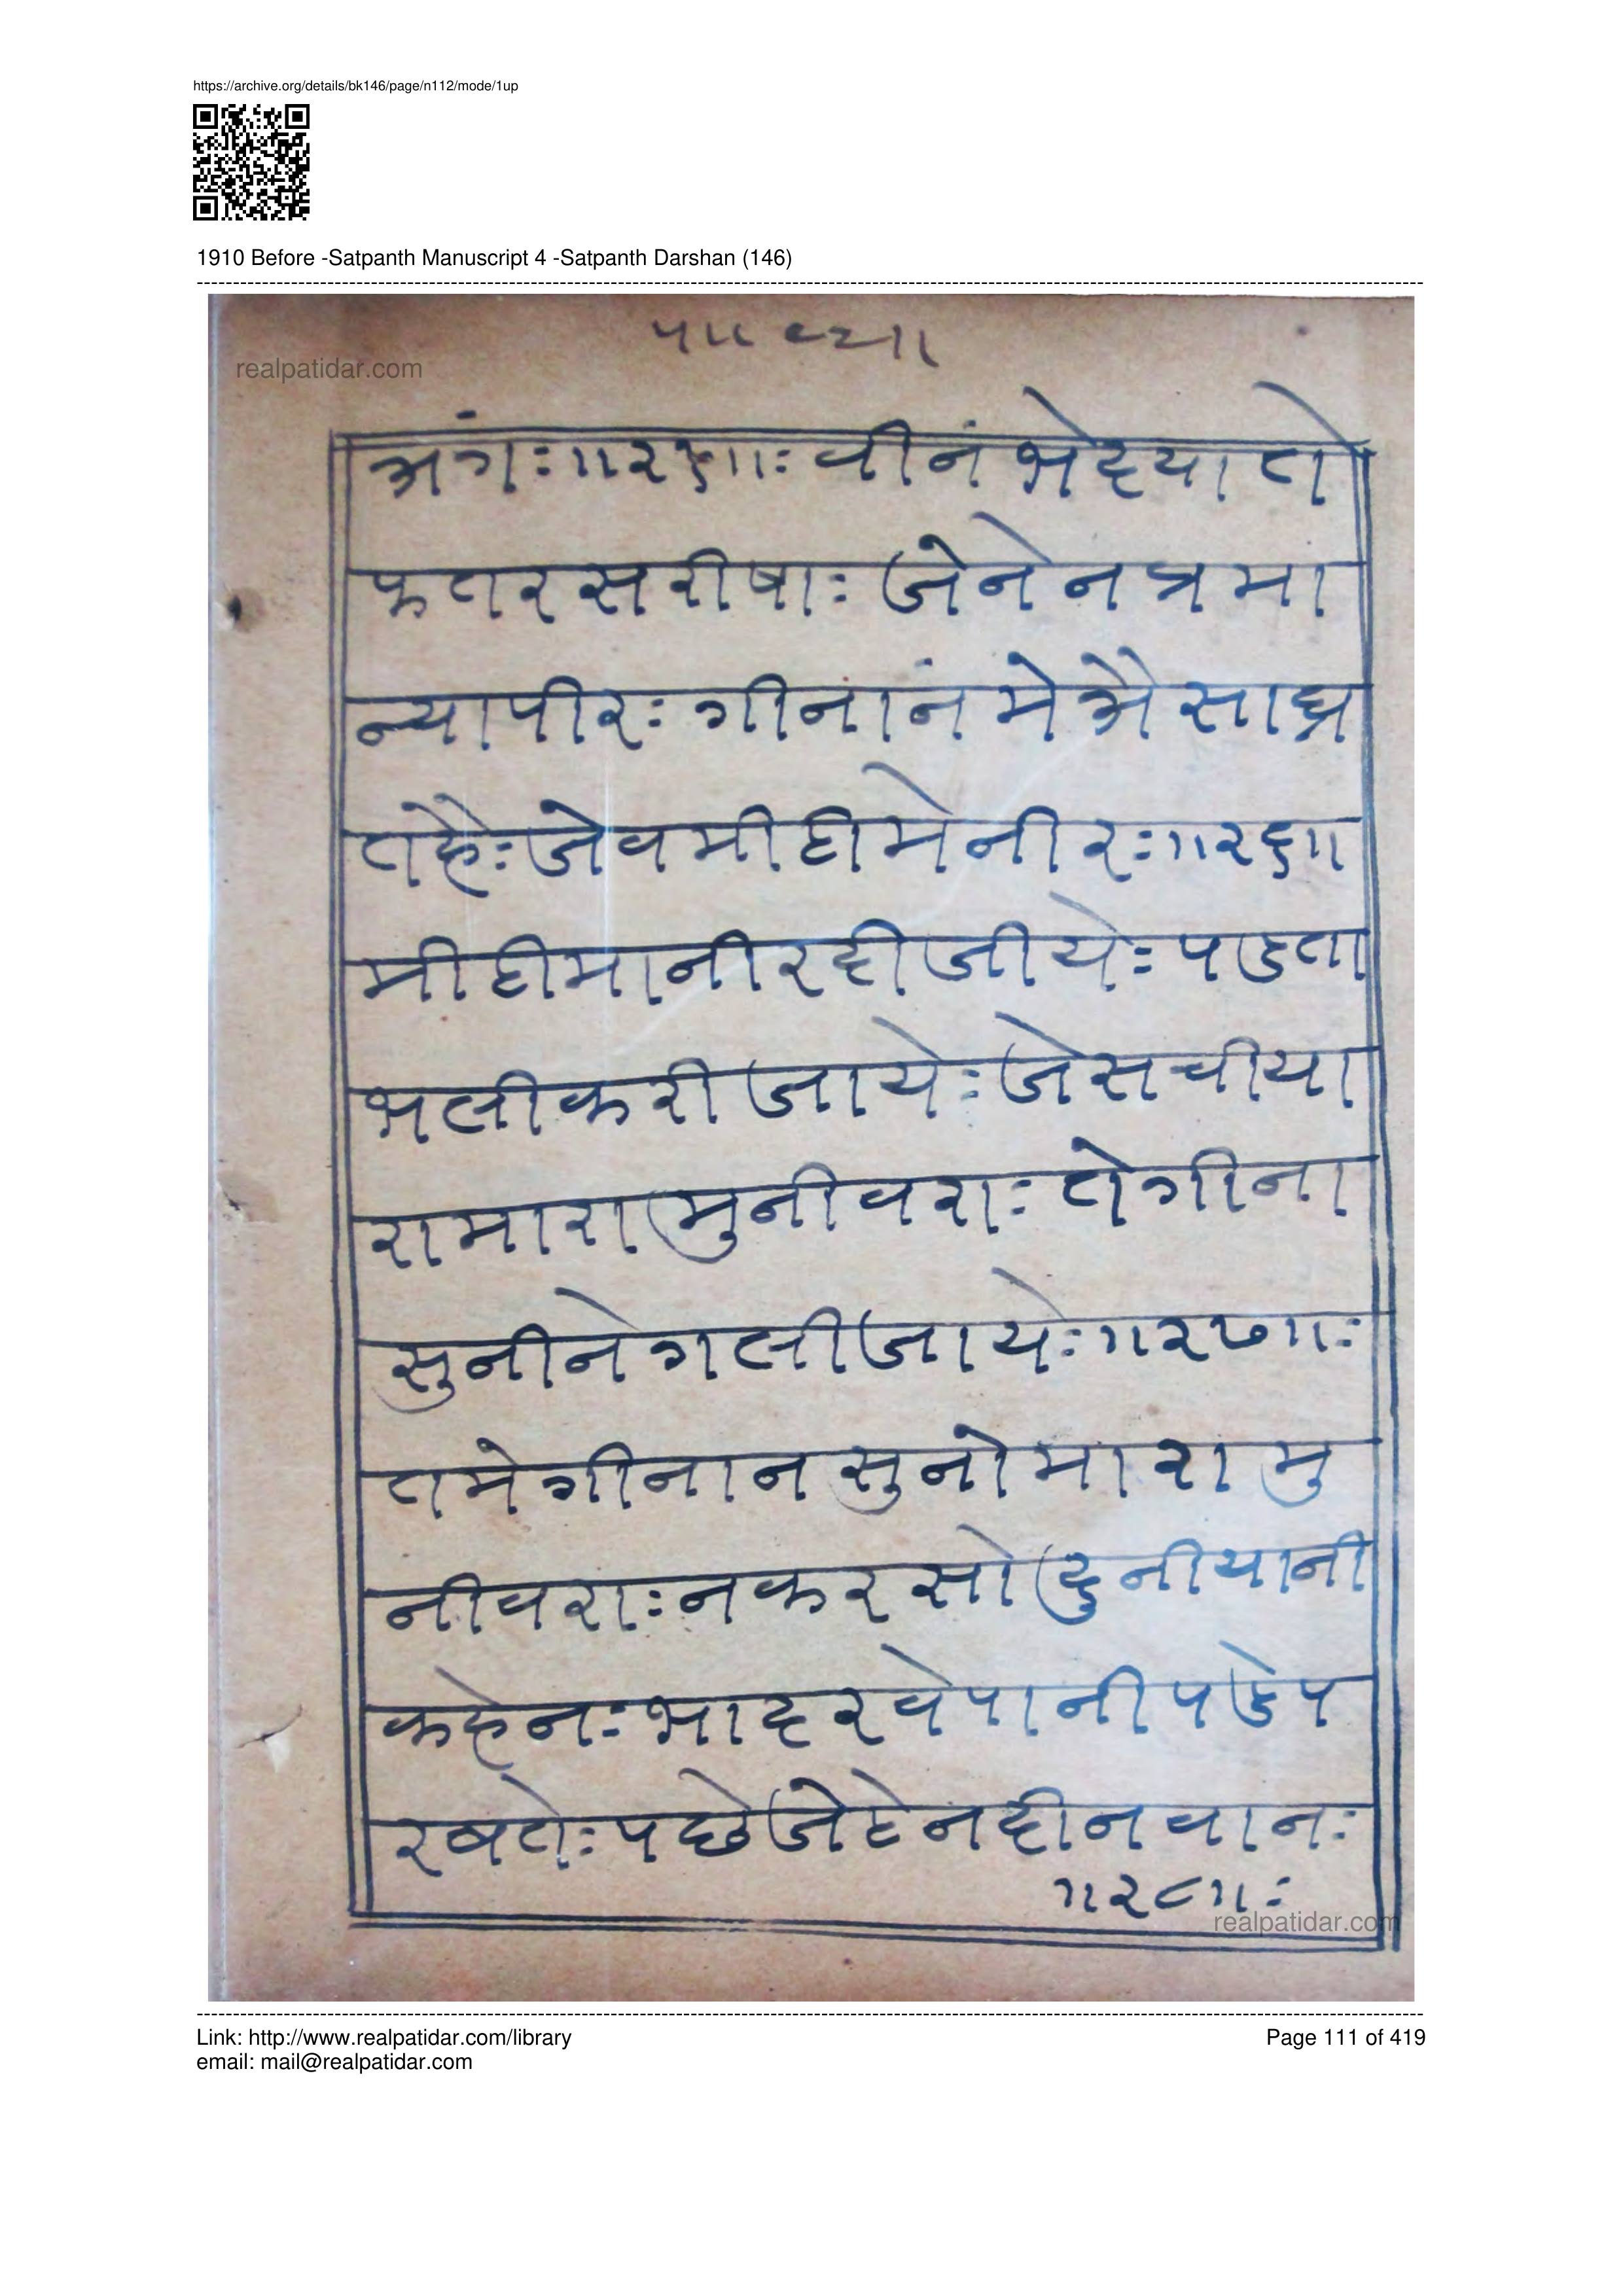 https://archive.org/details/bk146/page/n112/mode/1up
1910 Before -Satpanth Manuscript 4 -Satpanth Darshan (146)
realpatidar.com
अंगः॥२५॥ः वीनं भेद्या ते
फतर सरीषाः जेने न त्रमा
न्या पीरः गीनानं मे अैसा घ्र
त हैः जेव मीही मे नीरः॥२६॥
मीही मा नीर ही जीयेः पडता
भली करी जायेः जे सचीया
रा मारा मुनीवराः ते गीना
सुनीने गली जायेः॥२७॥ः
तमे गीनान सुनो मारा मु
नीवराः न करसो दुनीयानी
कहेनः भादरवे पानी पडे प
रबतेः पछे जेठे नही नवानः
॥२८॥ः
realpatidar.com
Link: http://www.realpatidar.com/library
Page 111 of 419
email: mail@realpatidar.com